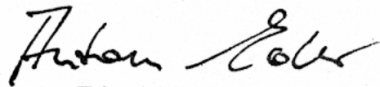 Anton Eder